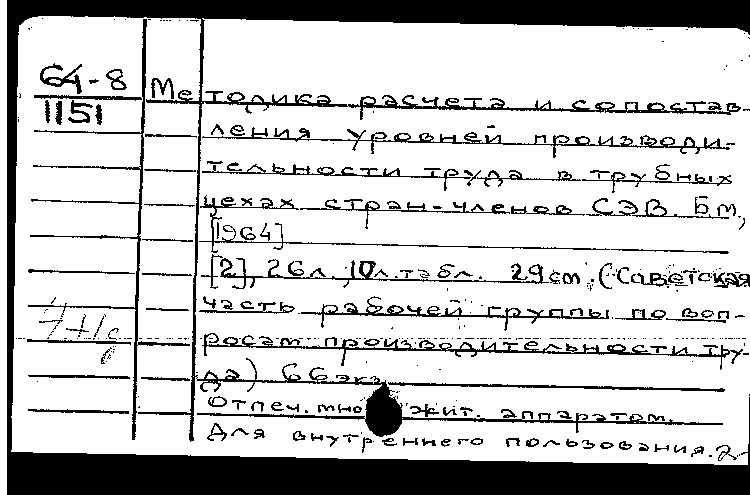 64-8
1151
Методика расчета и сопостав-
ления уровней производи-
тельности труда в трубных
цехах стран-членов СЭВ. Б.м.,
[1964]
[2], 26л., 10л.табл. 29см. (Советская
часть рабочей группы по воп-
росам производительности тру-
да) 66экз.
Отпеч. мно жит. аппаратом.
Для внутреннего пользования.